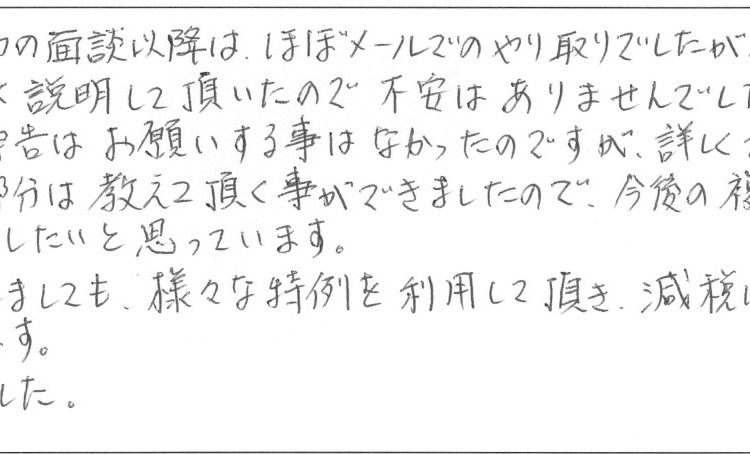 の面談以降は、ほぼメールでのやり取りでしたが、
く説明して頂いたので不安はありませんでした
告はお願いする事はなかったのですが、詳しく
部分は教えて頂く事ができましたので、今後の複
したいと思っています。
ましても、様々な特例を利用して頂き、減税に
す。
した。